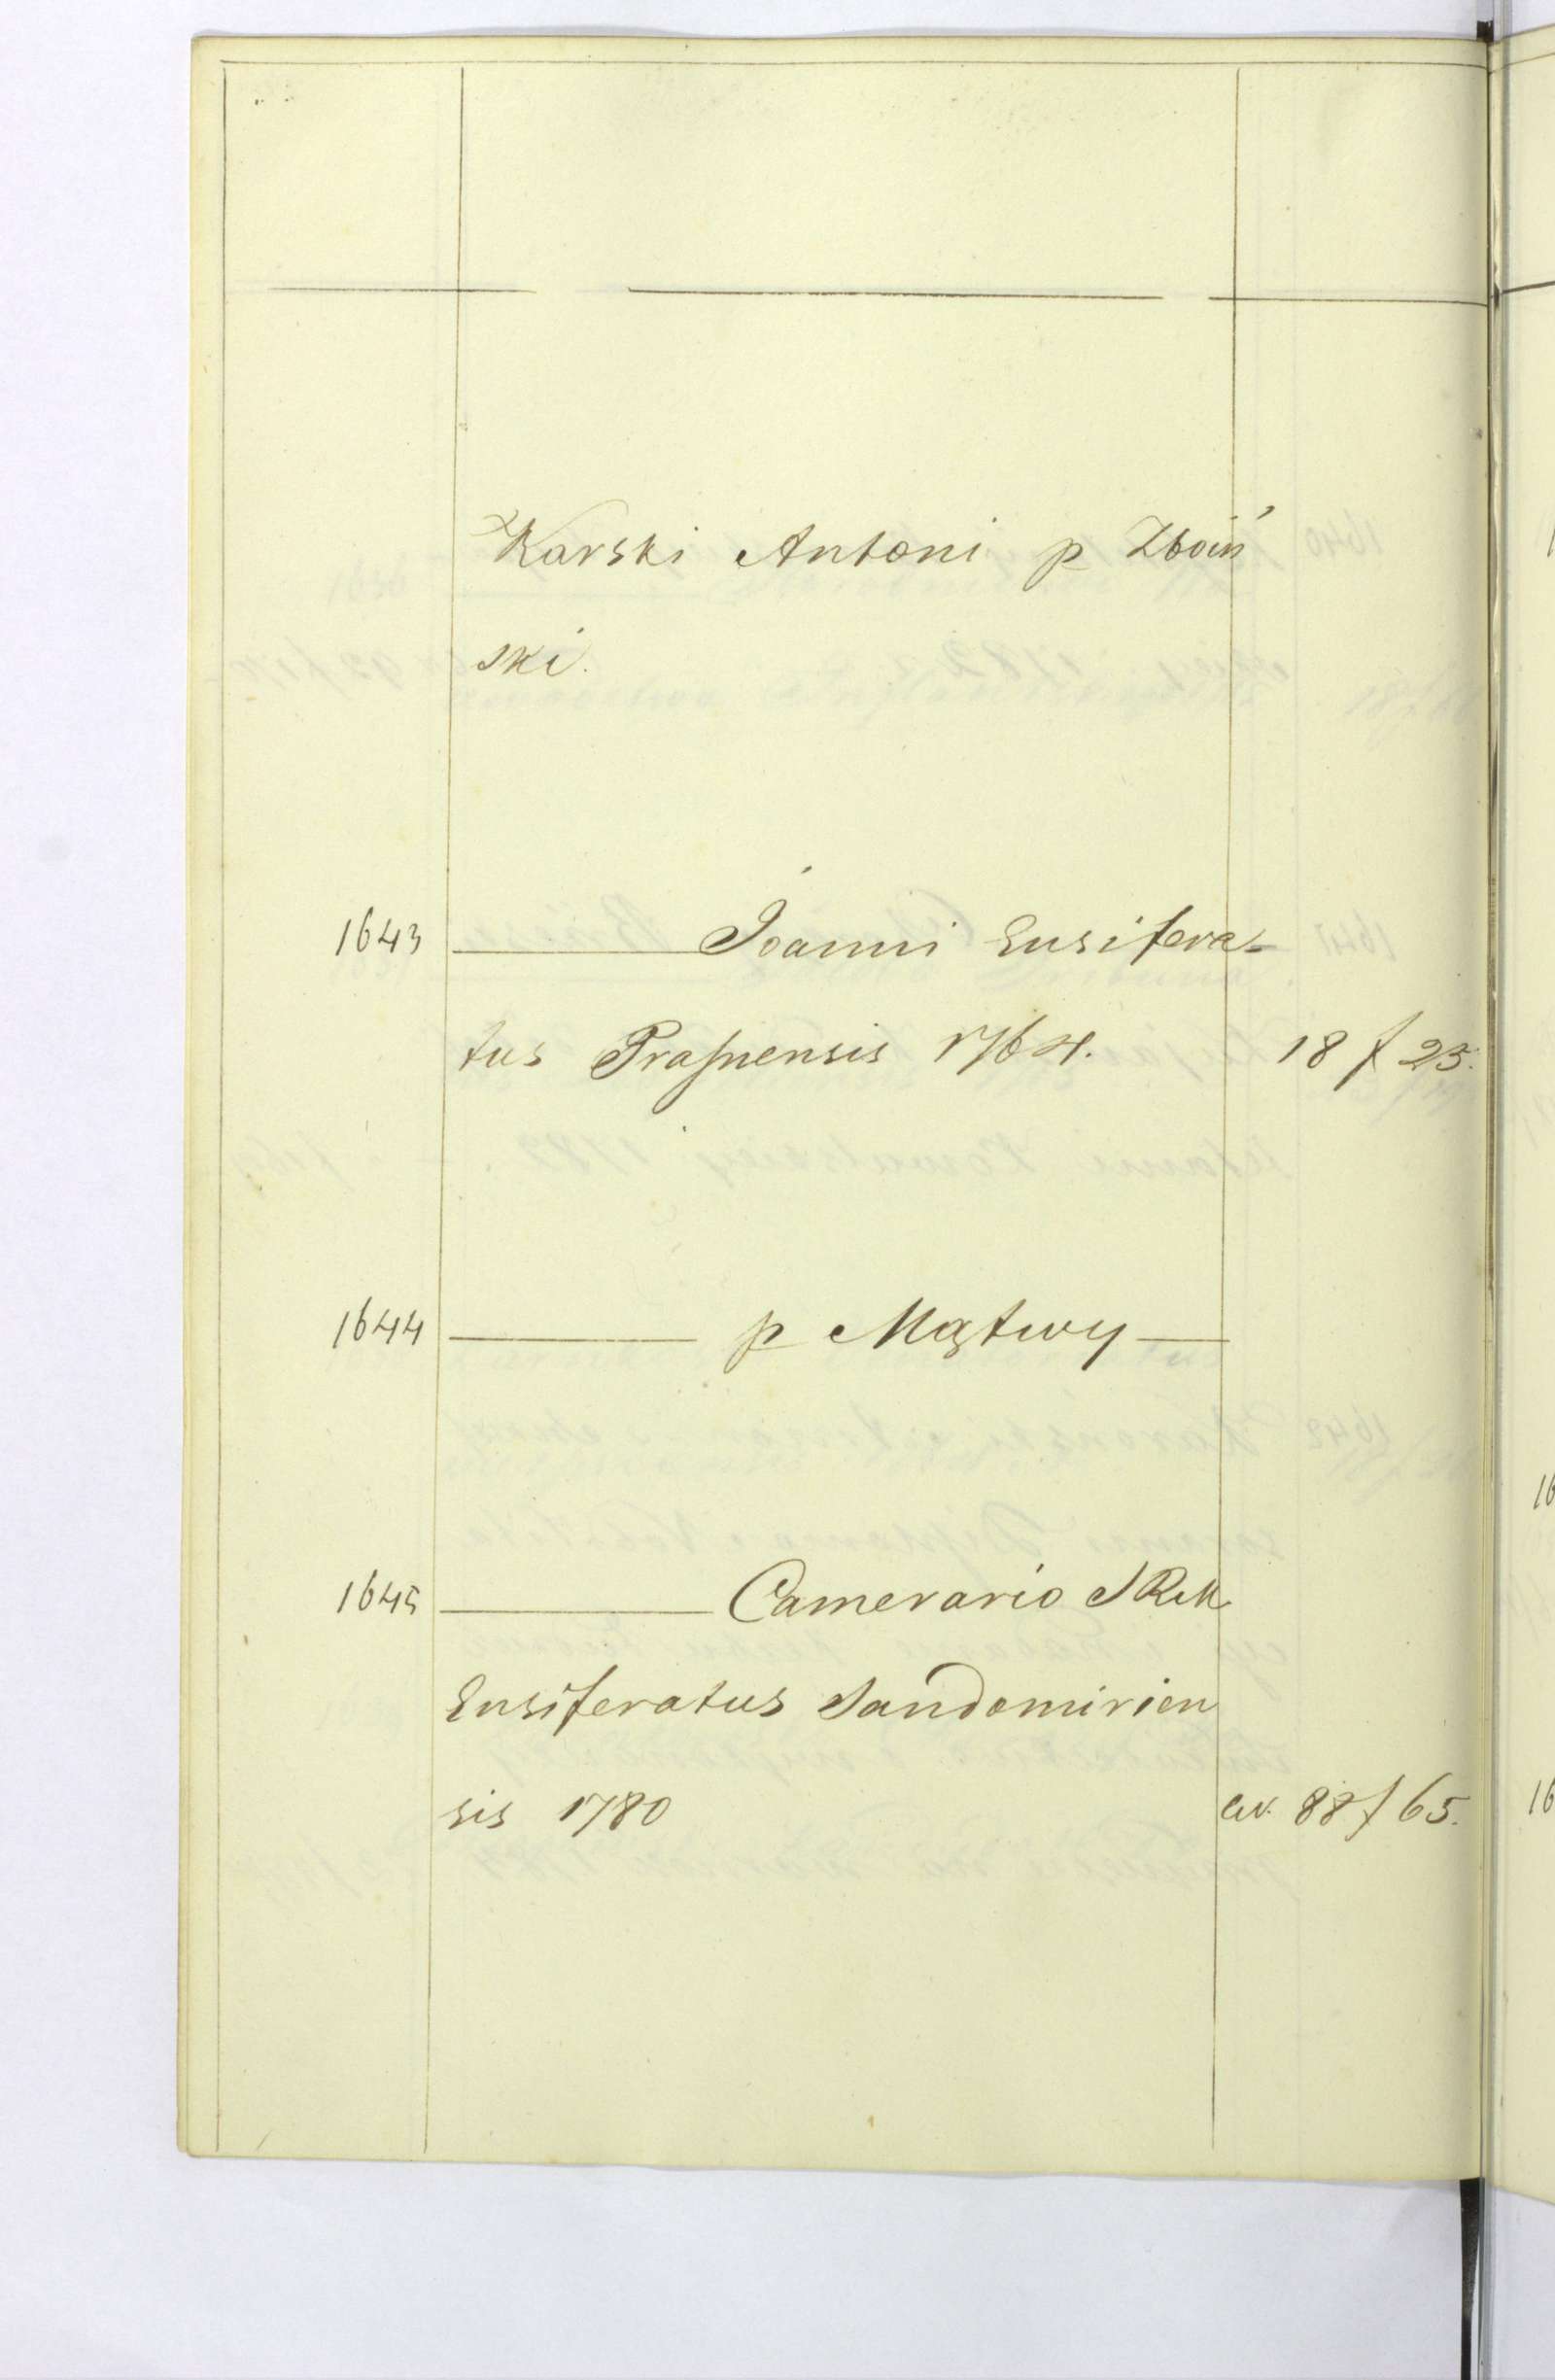 Karski Antoni p Zboiń
ski.
1643 Joanni Ensifera-
tus Prasnensis 1764. 18 f 25.
1644 p Mątwy
1645 Camerario SRM
Ensiferatus Sandomirien
sis 1780 88 f 65.